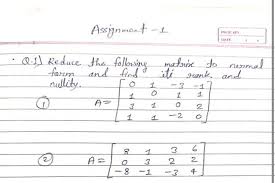 Assignment - 1
PAGE NO.
DATE
Q.1) Reduce the following matrix to normal
form and find its rank and
nullity.
① A = [ 0 1 -3 -1
1 0 1 1
3 1 0 2
1 1 -2 0 ]
② A = [ 8 1 3 6
0 3 2 2
-8 -1 -3 4 ]